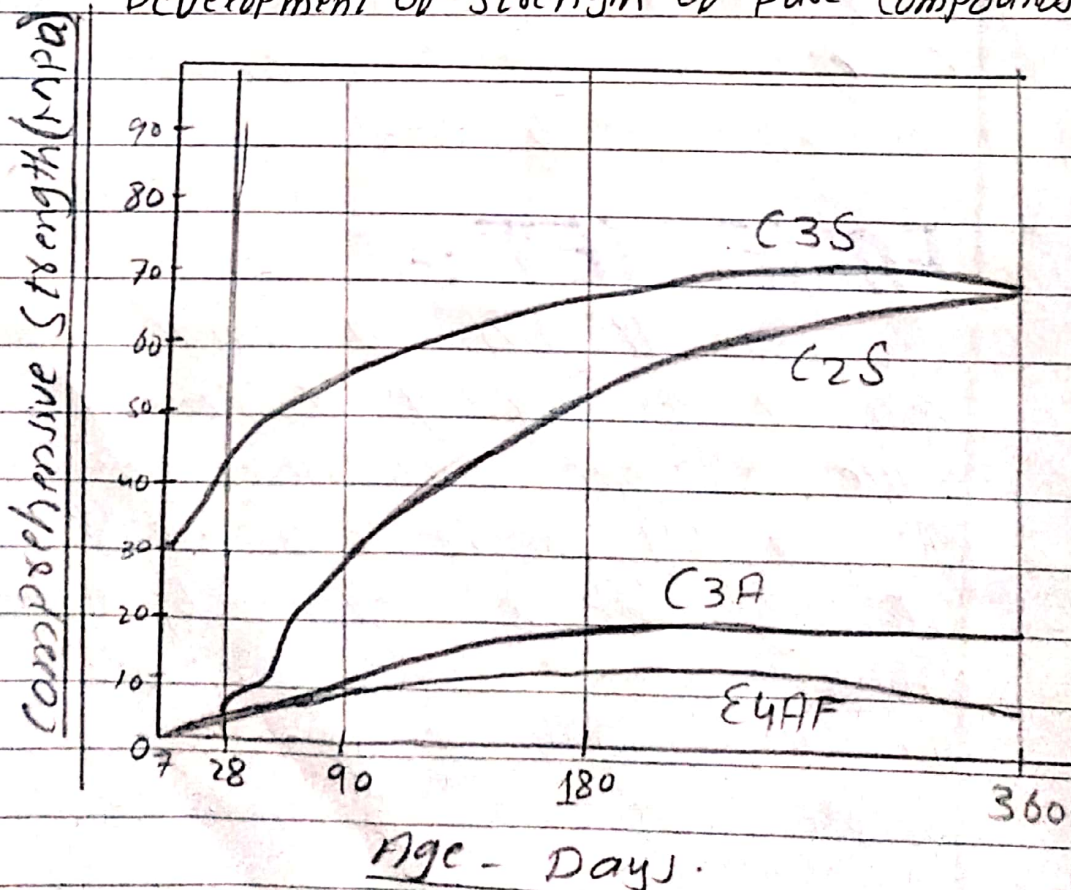 Development of Strength of Pure Compounds
Comprehensive Strength (MPa)
90
80
70
60
50
40
30
20
10
0
C3S
C2S
C3A
C4AF
7 28 90 180 360
Age - Days.